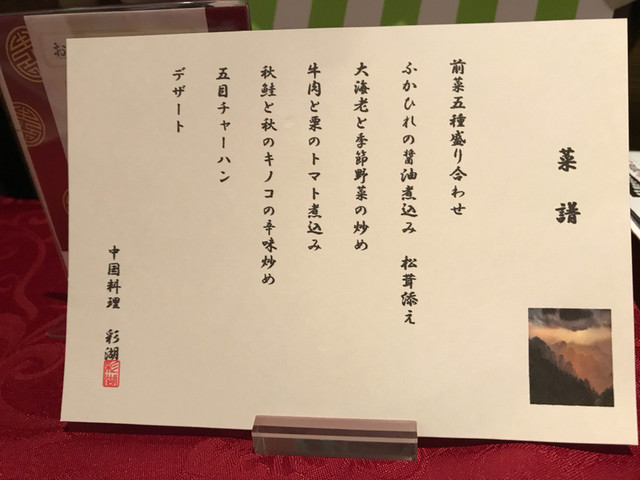 菜譜
前菜五種盛り合わせ
ふかひれの醤油煮込み 松茸添え
大海老と季節野菜の炒め
牛肉と栗のトマト煮込み
秋鮭と秋のキノコの辛味炒め
五目チャーハン
デザート
中国料理 彩湖
彩湖
お